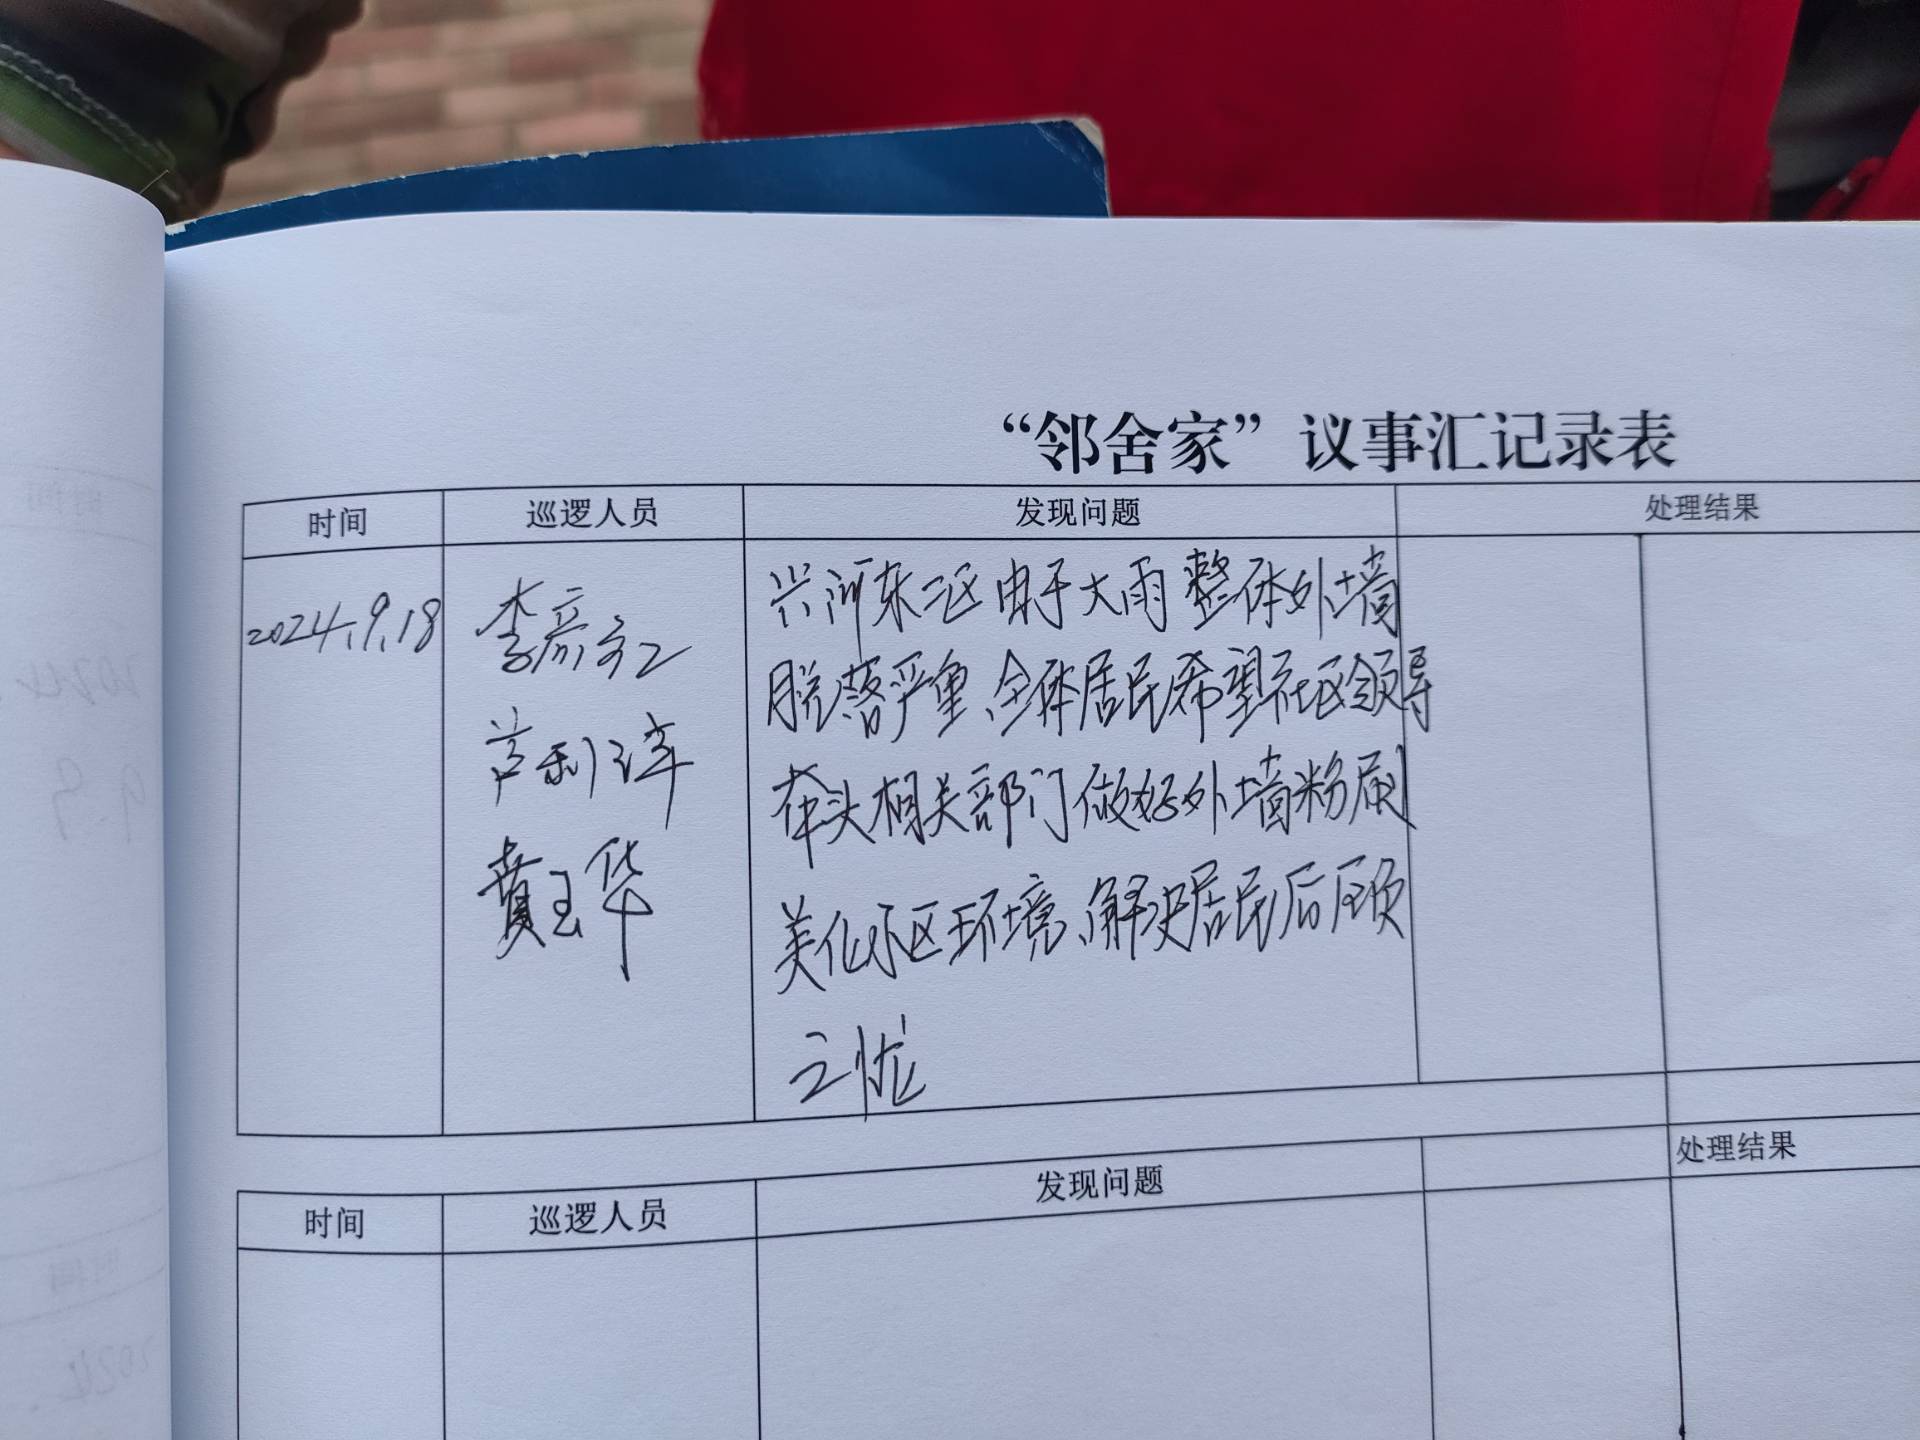 “邻舍家”议事汇记录表
时间 巡逻人员 发现问题 处理结果
2024.9.18
李彦
芦利萍
黄玉华
兴河东二区由于大雨整体外墙
脱落严重、全体居民希望社区领导
牵头相关部门做好外墙粉刷
美化小区环境、解决居民后顾
之忧
时间 巡逻人员 发现问题 处理结果